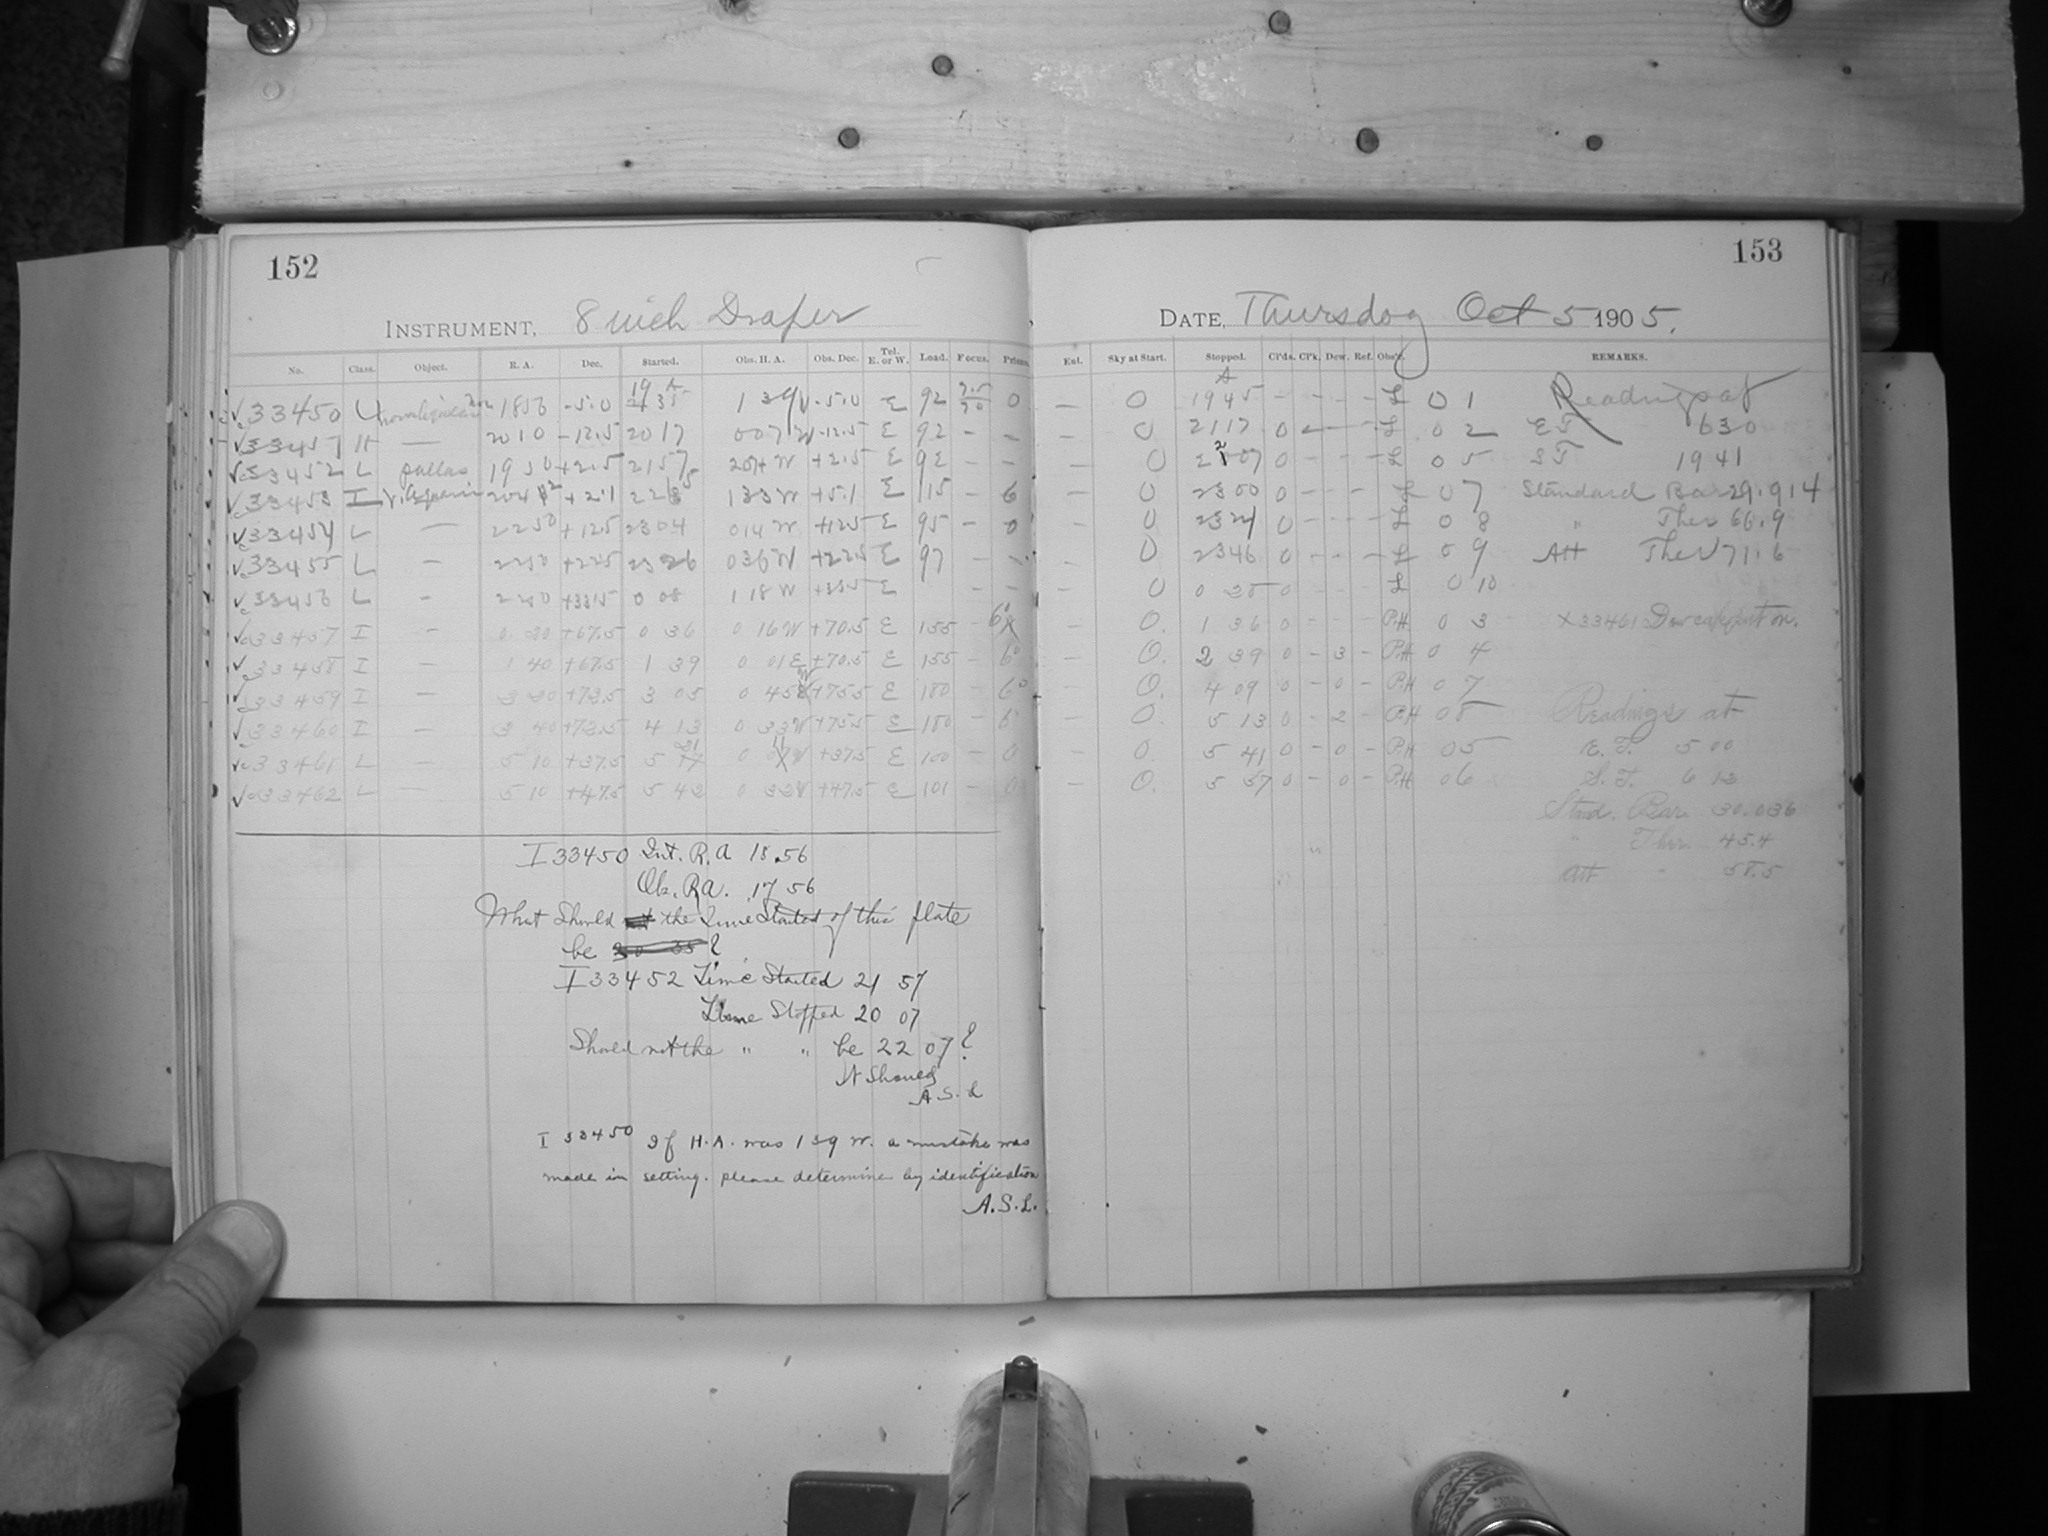 152
INSTRUMENT, 8 inch Draper
No. Class. Object. R. A. Dec. Started. Obs. H. A. Obs. Dec. Tel. E. or W. Load. Focus. Prisms.
33450 L 1856 -5.0 1 39 W -5.0 E 92 0
33451 H — 2010 -12.5 2017 007 W -12.5 E 92 - -
33452 L pallas 1930 +2.5 2157 204 W +2.5 E 92 - -
33453 I 133 W +5.1 E 115 - 6
33454 L — 2250 +12.5 2304 014 W +12.5 E 95 - 0
33455 L — 2250 +22.5 2326 036 W +22.5 E 97 - -
33456 L - 2250 +33.5 0 08 1 18 W +33.5 E - -
33457 I — 0 20 +67.5 0 36 0 16 W +70.5 E 155 - 6°
33458 I — 1 40 +67.5 1 39 0 01 E +70.5 E 155 - 6°
33459 I — +73.5 3 05 0 45 W +75.5 E 180 - 6°
33460 I — 3 40 +73.5 4 13 0 33 W +75.5 E 180 - 6°
33461 L — 5 10 +37.5 5 21 0 11 W +37.5 E 100 - 0
33462 L — 5 10 +47.5 5 42 0 32 W +47.5 E 101 - 0
I 33450 Int. R.A 18.56
Ob. RA. 17 56
What Should the Time Started of this plate
be ?
I 33452 Time Started 21 57
Time Stopped 20 07
Should not the " " be 22 07?
It Should
A. S. L
I 33450 If H.A. was 1 39 W. a mistake was
made in setting. please determine by identification
A.S.L.
153
DATE, Thursday Oct 5 1905.
Ext. Sky at Start. Stopped. Cl'ds. Cl'k. Dew. Ref. Obs'r. REMARKS.
— 0 1945 - - - - L 0 1 Readings at
— 0 2117 0 - - - L 0 2 ET 630
— 0 2207 0 - - - L 0 5 ST 1941
— 0 2300 0 - - - L 0 7 Standard Bar 29.914
- 0 2324 0 - - - L 0 8 " Ther 66.9
- 0 2346 0 - - - L 0 9 Att Ther 71.6
— 0 0 0 - - L 0 10
— 0. 1 36 0 - - - P.H 0 3 X33461 Dew cap put on.
— 0. 2 39 0 - 3 - P.H 0 4
— 0. 4 09 0 - 0 - P.H 0 7
— 0. 5 13 0 - 2 - P.H 08 Readings at
— 0. 5 41 0 - 0 - P.H 05 E. T. 5 00
— 0. 5 57 0 - 0 - P.H 06 S. T. 6 13
Stand. Bar. 30.036
" Ther. 45.4
Att " 58.5